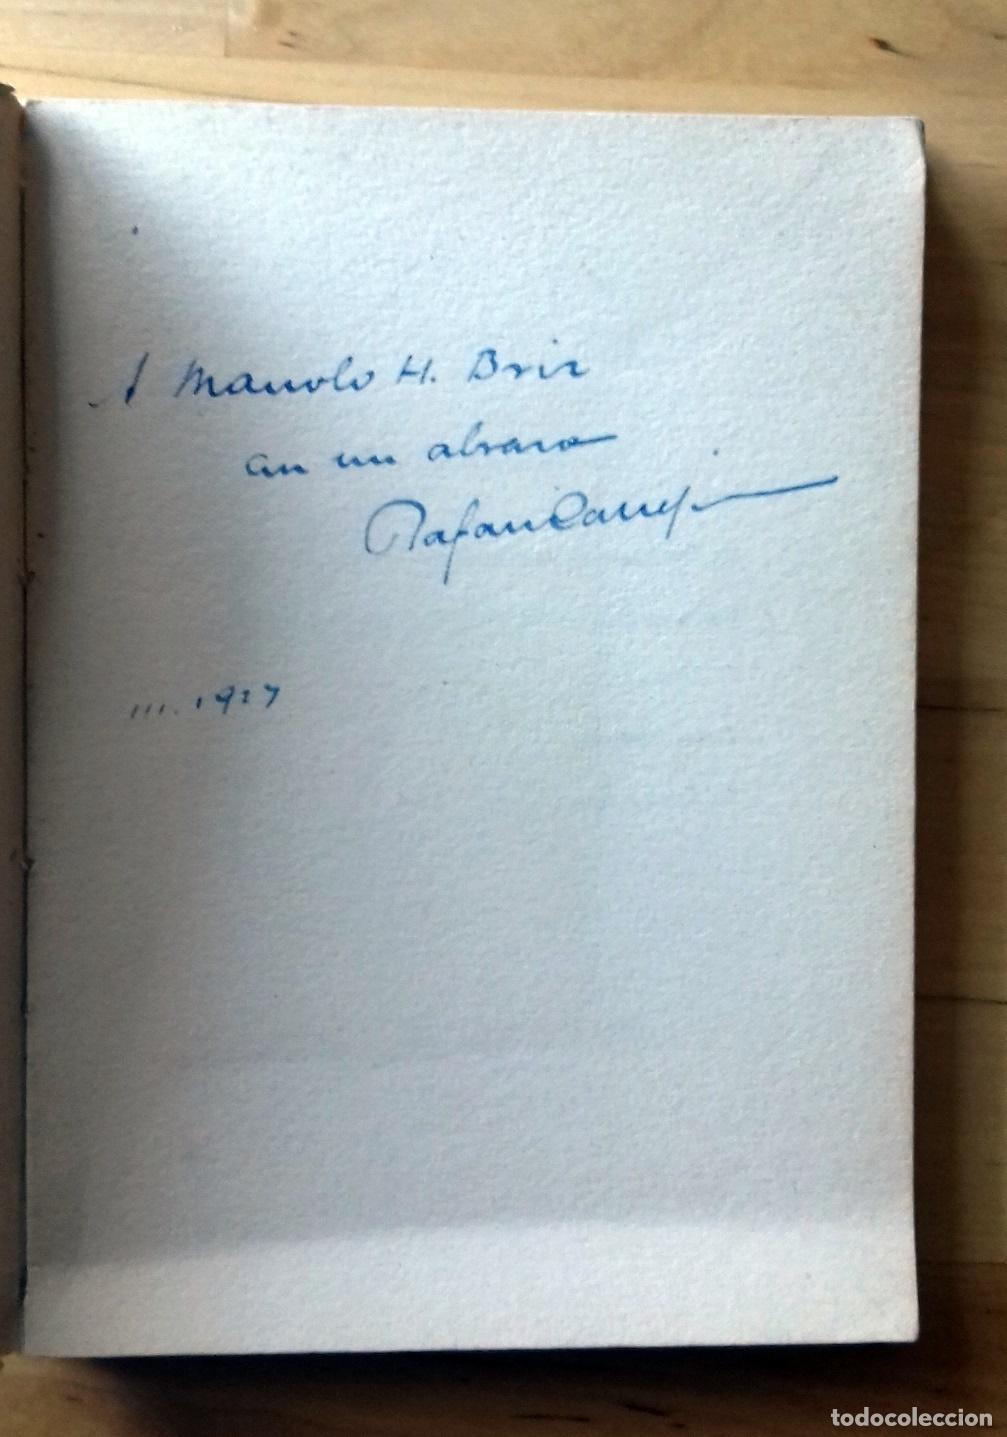 A Manolo H. Briz
con un abrazo
Rafael
III. 1927
todocoleccion